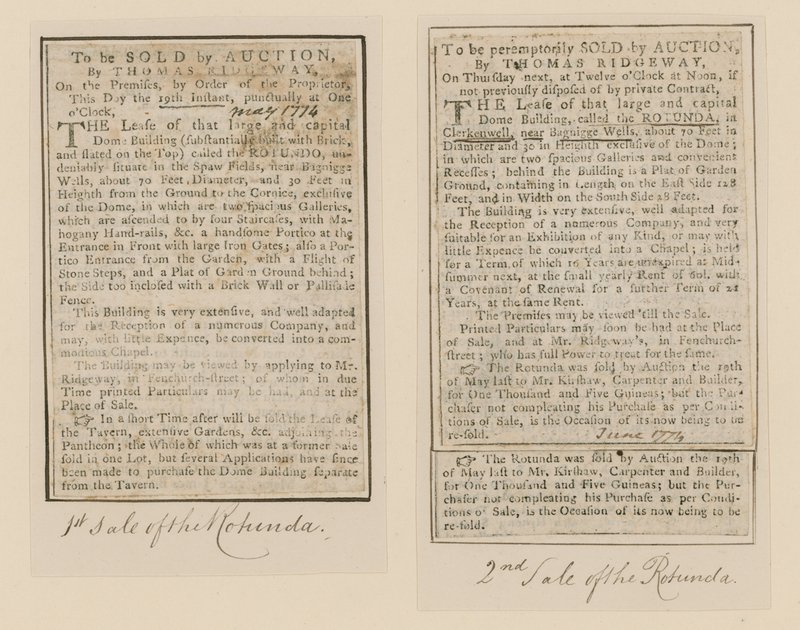 To be SOLD by AUCTION,
By THOMAS RIDGEWAY,
On the Premiſes, by Order of the Proprietor,
This Day the 19th Inſtant, punctually at One
o'Clock, May 1774
THE Leaſe of that large and capital
Dome Building (ſubſtantially built with Brick,
and ſlated on the Top) called the ROTUNDO, un-
deniably ſituate in the Spaw Fields, near Bagnigge
Wells, about 70 Feet Diameter, and 30 Feet in
Heighth from the Ground to the Cornice, excluſive
of the Dome, in which are two ſpacious Galleries,
which are aſcended to by four Staircaſes, with Ma-
hogany Hand-rails, &c. a handſome Portico at the
Entrance in Front with large Iron Gates; alſo a Por-
tico Entrance from the Garden, with a Flight of
Stone Steps, and a Plat of Garden Ground behind;
the Side too incloſed with a Brick Wall or Palliſade
Fence.
This Building is very extenſive, and well adapted
for the Reception of a numerous Company, and
may, with little Expence, be converted into a com-
modious Chapel.
The Building may be viewed by applying to Mr.
Ridgeway, in Fenchurch-ſtreet; of whom in due
Time printed Particulars may be had, and at the
Place of Sale.
☞ In a ſhort Time after will be ſold the Leaſe of
the Tavern, extenſive Gardens, &c. adjoining the
Pantheon; the Whole of which was at a former Sale
ſold in one Lot, but ſeveral Applications have ſince
been made to purchaſe the Dome Building ſeparate
from the Tavern.
1st Sale of the Rotunda.
To be peremptorily SOLD by AUCTION,
By THOMAS RIDGEWAY,
On Thurſday next, at Twelve o'Clock at Noon, if
not previouſly diſpoſed of by private Contract,
THE Leaſe of that large and capital
Dome Building, called the ROTUNDA, in
Clerkenwell, near Bagnigge Wells, about 70 Feet in
Diameter and 30 in Heighth excluſive of the Dome;
in which are two ſpacious Galleries and convenient
Receſſes; behind the Building is a Plat of Garden
Ground, containing in Length on the Eaſt Side 128
Feet, and in Width on the South Side 28 Feet.
The Building is very extenſive, well adapted for
the Reception of a numerous Company, and very
ſuitable for an Exhibition of any Kind, or may with
little Expence be converted into a Chapel; is held
for a Term of which 16 Years are unexpired at Mid-
ſummer next, at the ſmall yearly Rent of 60l. with
a Covenant of Renewal for a further Term of 21
Years, at the ſame Rent.
The Premiſes may be viewed 'till the Sale.
Printed Particulars may ſoon be had at the Place
of Sale, and at Mr. Ridgeway's, in Fenchurch-
ſtreet; who has full Power to treat for the ſame.
☞ The Rotunda was ſold by Auction the 19th
of May laſt to Mr. Kirſhaw, Carpenter and Builder,
for One Thouſand and Five Guineas; but the Pur-
chaſer not compleating his Purchaſe as per Condi-
tions of Sale, is the Occaſion of its now being to be
re-ſold. June 1774
☞ The Rotunda was ſold by Auction the 19th
of May laſt to Mr. Kirſhaw, Carpenter and Builder,
for One Thouſand and Five Guineas; but the Pur-
chaſer not compleating his Purchaſe as per Condi-
tions of Sale, is the Occaſion of its now being to be
re-ſold.
2nd Sale of the Rotunda.